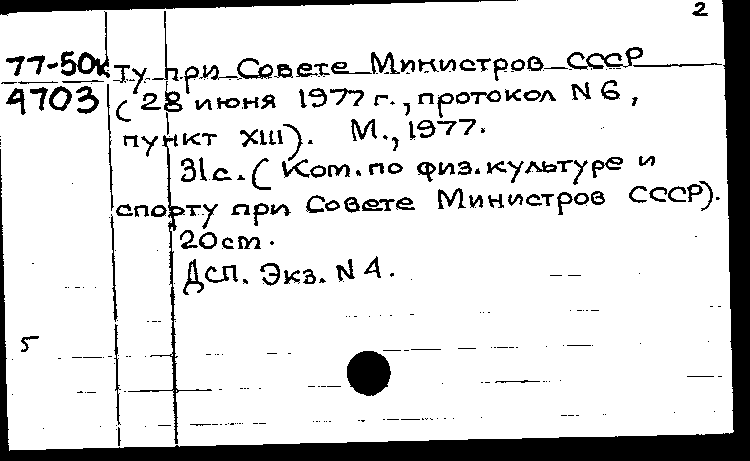 2
77-50к ту при Совете Министров СССР
4703 (28 июня 1977 г., протокол N 6,
пункт XIII). М., 1977.
31с. (Ком. по физ. культуре и
спорту при Совете Министров СССР).
20 cm.
Дсп. Экз. N 4.
5